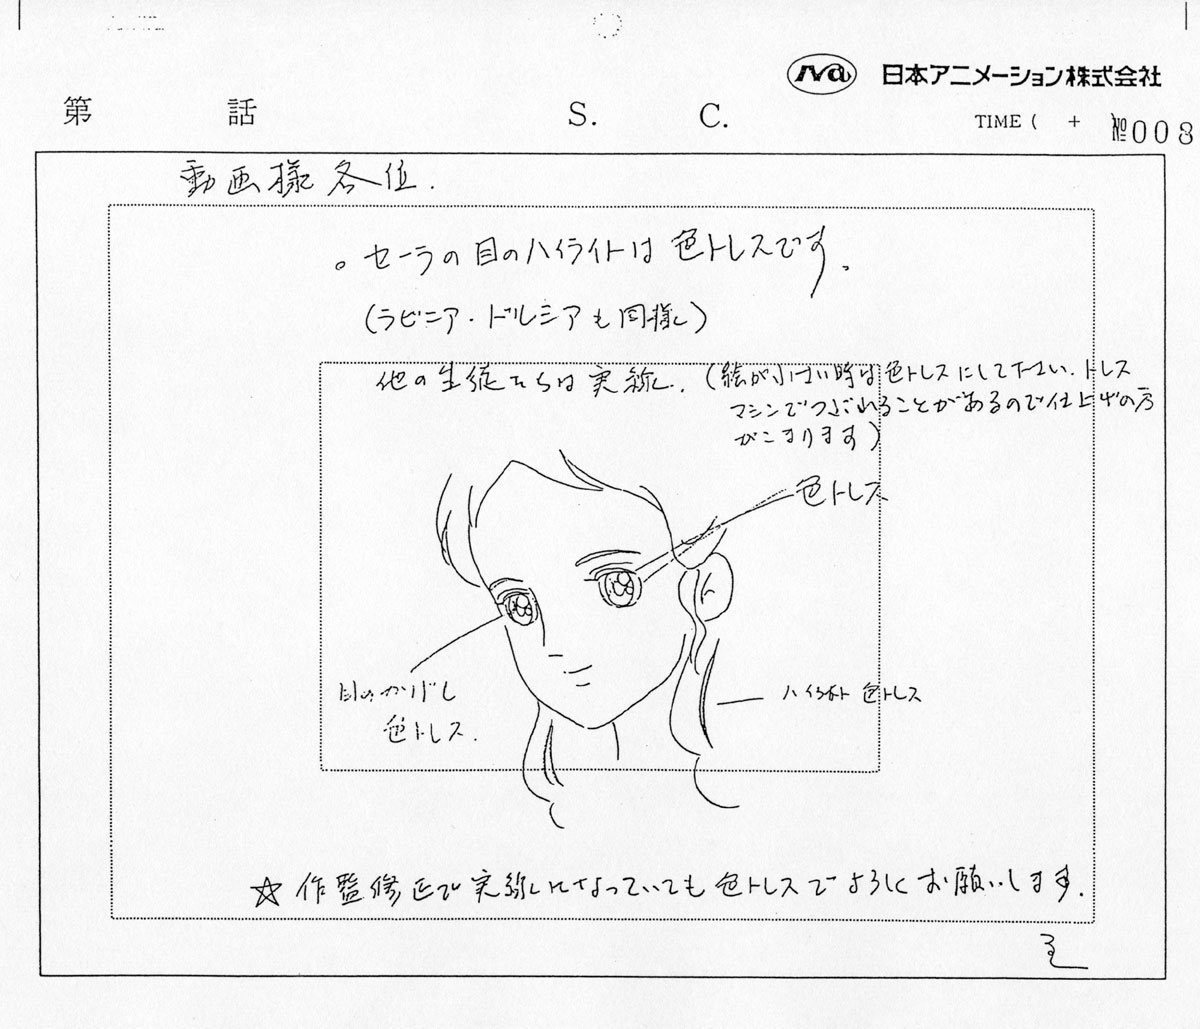 日本アニメーション株式会社
第 話 S. C. TIME ( + №008
動画様各位.
。セーラの目のハイライトは色トレスです。
(ラビニア・ドルシアも同様)
他の生徒たちは実線. (絵が小さい時は色トレスにして下さい.トレス
マシンでつぶれることがあるので仕上げの方
がこまります)
色トレス
目のカゲし
色トレス.
ハイライト 色トレス
☆作監修正で実線になっていても色トレスでよろしくお願いします.